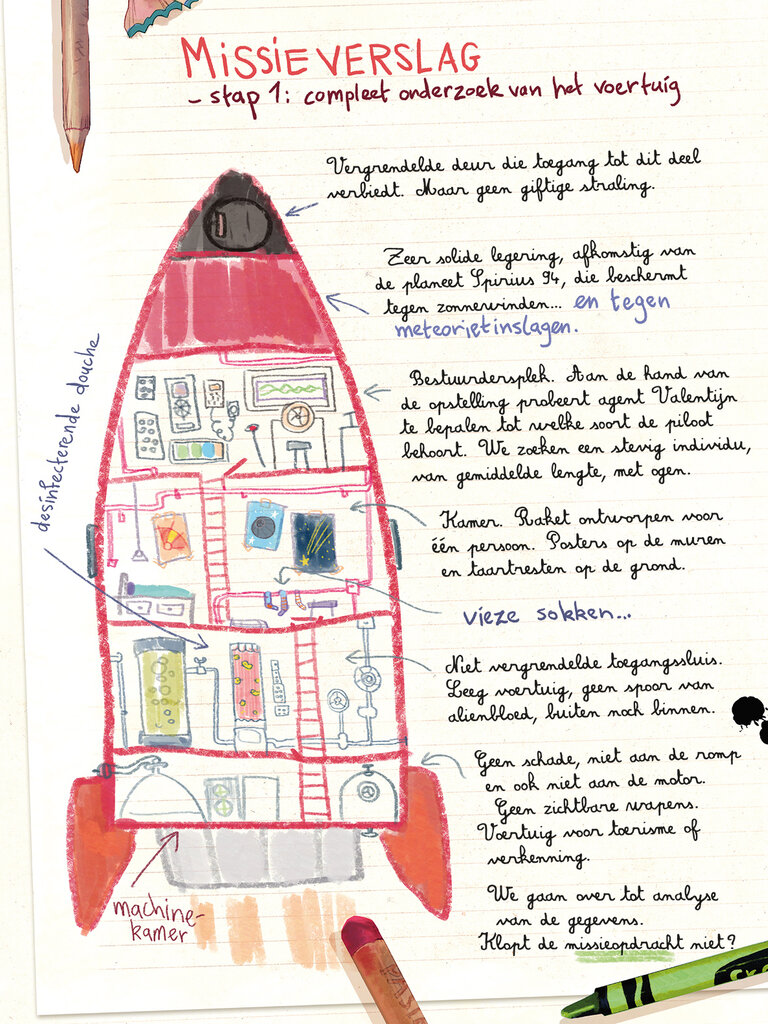 MISSIEVERSLAG
- stap 1: compleet onderzoek van het voertuig
Vergrendelde deur die toegang tot dit deel
verbiedt. Maar geen giftige straling.
Zeer solide legering, afkomstig van
de planeet Spirius 94, die beschermt
tegen zonnewinden... en tegen
meteorietinslagen.
desinfecterende douche
Bestuurdersplek. Aan de hand van
de opstelling probeert agent Valentijn
te bepalen tot welke soort de piloot
behoort. We zoeken een stevig individu,
van gemiddelde lengte, met ogen.
Kamer. Raket ontworpen voor
één persoon. Posters op de muren
en taartresten op de grond.
vieze sokken...
Niet vergrendelde toegangssluis.
Leeg voertuig, geen spoor van
alienbloed, buiten noch binnen.
Geen schade, niet aan de romp
en ook niet aan de motor.
Geen zichtbare wapens.
Voertuig voor toerisme of
verkenning.
machine-
kamer
We gaan over tot analyse
van de gegevens.
Klopt de missieopdracht niet?